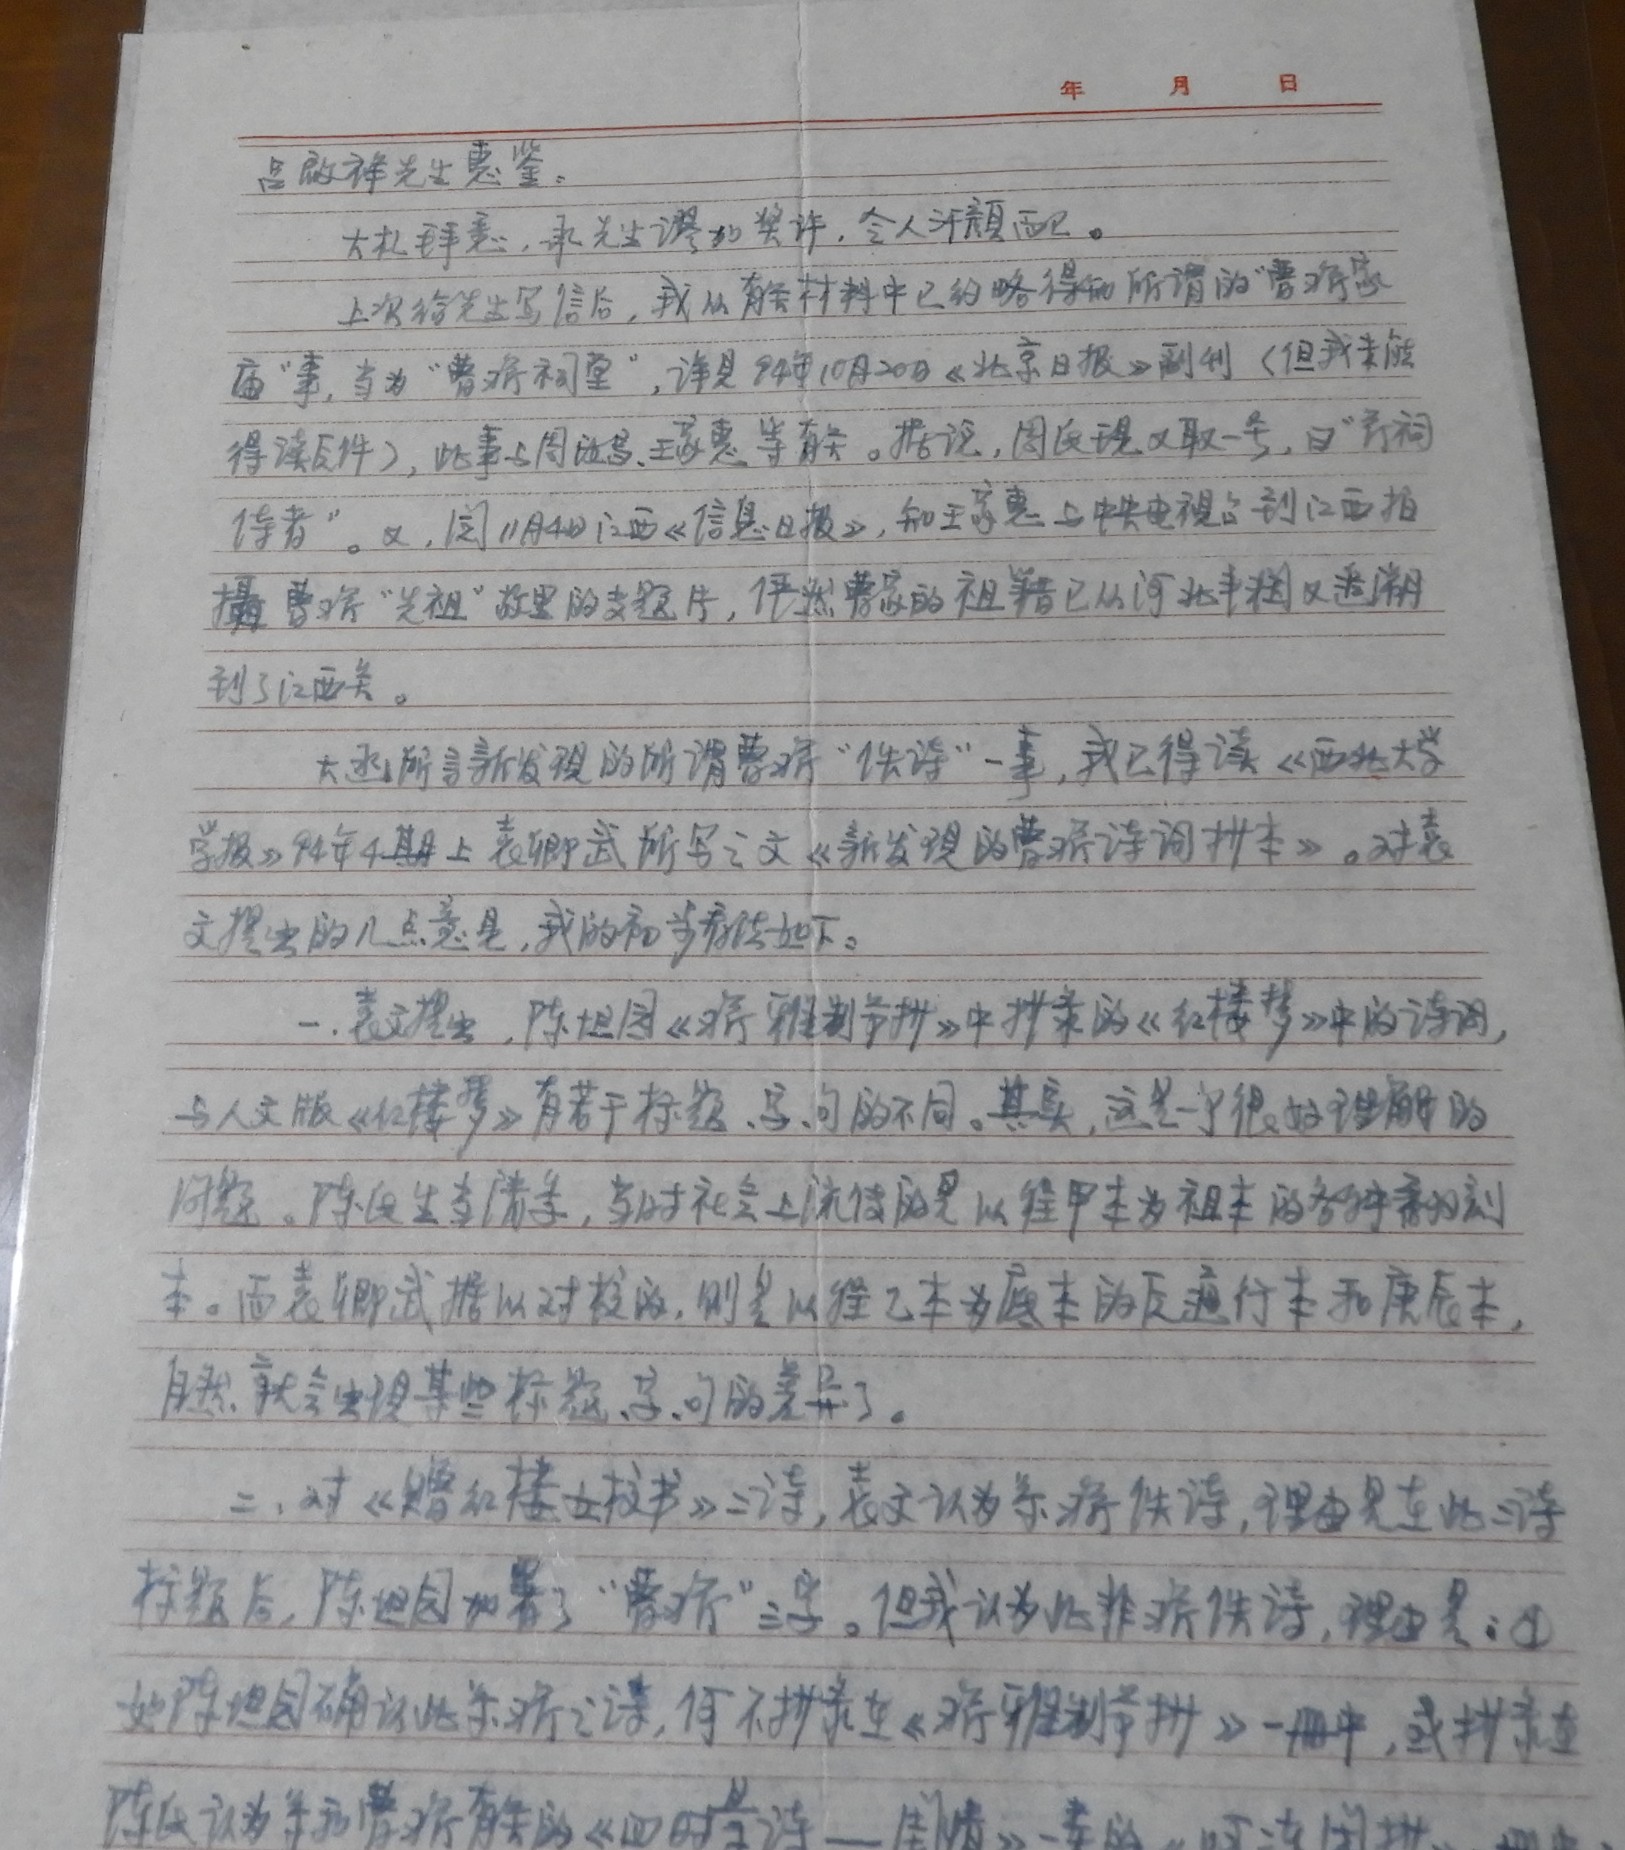 年 月 日
吕啟祥先生惠鉴：
大札拜悉，承先生谬加奖许，令人汗颜而已。
上次给先生写信后，我从有关材料中已约略得知所谓的“曹霑家
庙”事，当为“曹霑祠堂”，详见94年10月20日《北京日报》副刊（但我未能
得读原件），此事与周汝昌、王家惠等有关。据说，周氏现又取一号，曰“霑祠
侍者”。又，阅11月4日江西《信息日报》，知王家惠与中央电视台到江西拍
攝曹霑“先祖”故里的专题片，俨然曹家的祖籍已从河北丰润又追溯
到了江西矣。
大函所言新发现的所谓曹霑“佚诗”一事，我已得读《西北大学
学报》94年4期上袁卿武所写之文《新发现的曹霑诗词抄本》。对袁
文提出的几点意见，我的初步看法如下：
一、袁文提出，陈坦园《霑雅制节抄》中抄录的《红楼梦》中的诗词，
与人文版《红楼梦》有若干标题、字、句的不同。其实，这是一个很好理解的
问题。陈氏生当清季，当时社会上流传的是以程甲本为祖本的各种翻刻
本。而袁卿武据以对校的，则是以程乙本为底本的通行本和庚辰本，
自然就会出现某些标题、字、句的差异了。
二、对《赠红楼女校书》二诗，袁文认为系霑佚诗，理由是在此二诗
标题后，陈坦园加署了“曹霑”二字。但我认为此非霑佚诗，理由是：①
如陈坦园确认此系霑之诗，何不抄录在《霑雅制节抄》一册中，或抄录在
陈氏认为并和曹霑有关的《四时 诗——闺情》一类的